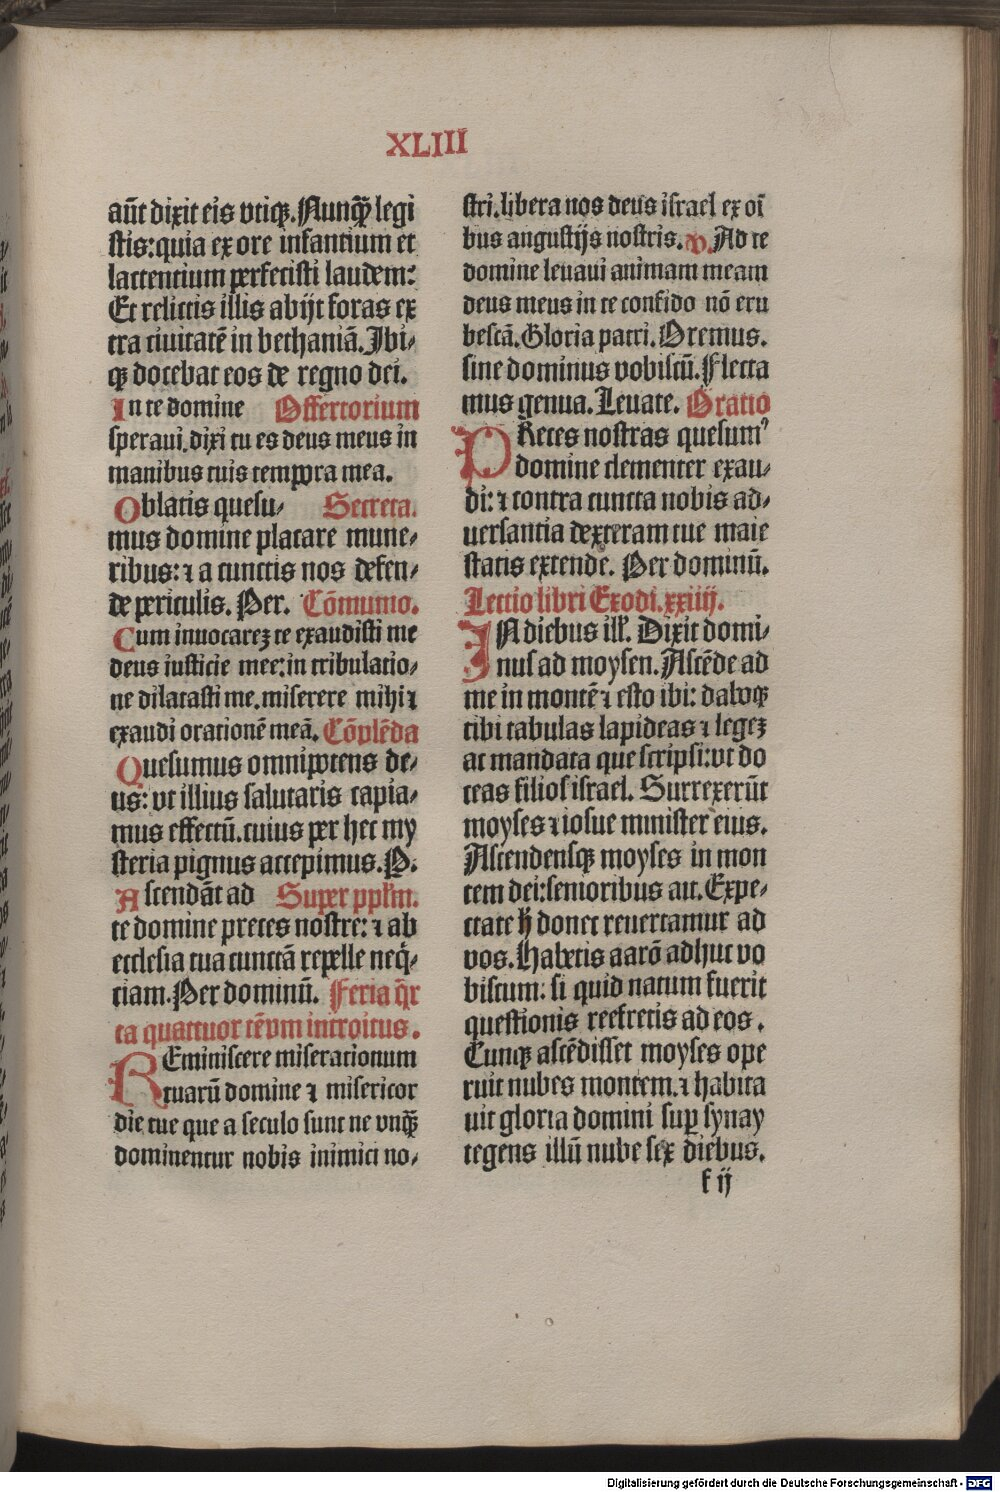 XLIII
aūt dixit eis vtiqꝫ. Nunqꝫ̄ legi
stis: quia ex ore infantium et
lactentium perfecisti laudem:
Et relictis illis abijt foras ex
tra ciuitatē in bethaniā. Ibi⸗
qꝫ docebat eos de regno dei.
In te domine Offertorium
speraui. dixi tu es deus meus in
manibus tuis tempora mea.
Oblatis quesu⸗ Secreta.
mus domine placare mune⸗
ribus: ⁊ a cunctis nos defen⸗
de periculis. Per. Cōmunio.
Cum inuocareꝫ te exaudisti me
deus iusticie mee: in tribulatio⸗
ne dilatasti me. miserere mihi ⁊
exaudi orationē meā. Cōplēda
Quesumus omnipotens de⸗
us: vt illius salutaris capia⸗
mus effectū. cuius per hec my
steria pignus accepimus. P.
Ascendāt ad Super ppłm.
te domine preces nostre: ⁊ ab
ecclesia tua cunctā repelle neq̄⸗
ciam. Per dominū. Feria q̄r
ta quattuor tēpm introitus.
REminiscere miserationum
tuarū domine ⁊ misericor
die tue que a seculo sunt ne vnqꝫ̄
dominentur nobis inimici no⸗
stri. libera nos deus israel ex oī
bus angustijs nostris. v. Ad te
domine leuaui animam meam
deus meus in te confido nō eru
bescā. Gloria patri. Oremus.
sine dominus vobiscū. Flecta
mus genua. Leuate. Oratio
PReces nostras quesumꝰ
domine clementer exau⸗
di: ⁊ contra cuncta nobis ad⸗
uersantia dexteram tue maie
statis extende. Per dominū.
Lectio libri Exodi. xxiiij.
IN diebus ilł. Dixit domi⸗
nus ad moysen. Ascēde ad
me in montē ⁊ esto ibi: daboqꝫ
tibi tabulas lapideas ⁊ legeꝫ
ac mandata que scripsi: vt do
ceas filios israel. Surrexerūt
moyses ⁊ iosue minister eius.
Ascendensqꝫ moyses in mon
tem dei: senioribus ait. Expe⸗
ctate ħ donec reuertamur ad
vos. Habetis aarō ad huc vo
biscum: si quid natum fuerit
questionis referetis ad eos.
Cunqꝫ ascēdisset moyses ope
ruit nubes montem. ⁊ habita
uit gloria domini suꝑ synay
tegens illū nube sex diebus.
f ij
Digitalisierung gefördert durch die Deutsche Forschungsgemeinschaft - DFG